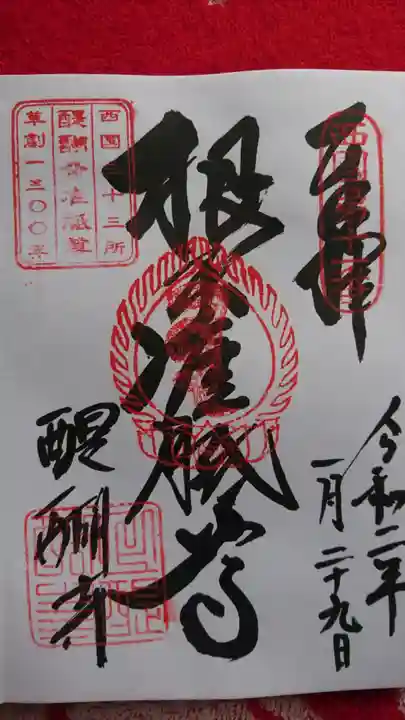 奉拝
西国第十一番
令和二年
一月二十九日
根本准胝尊
醍醐寺
西国三十三所
醍醐山准胝堂
草創一三〇〇年